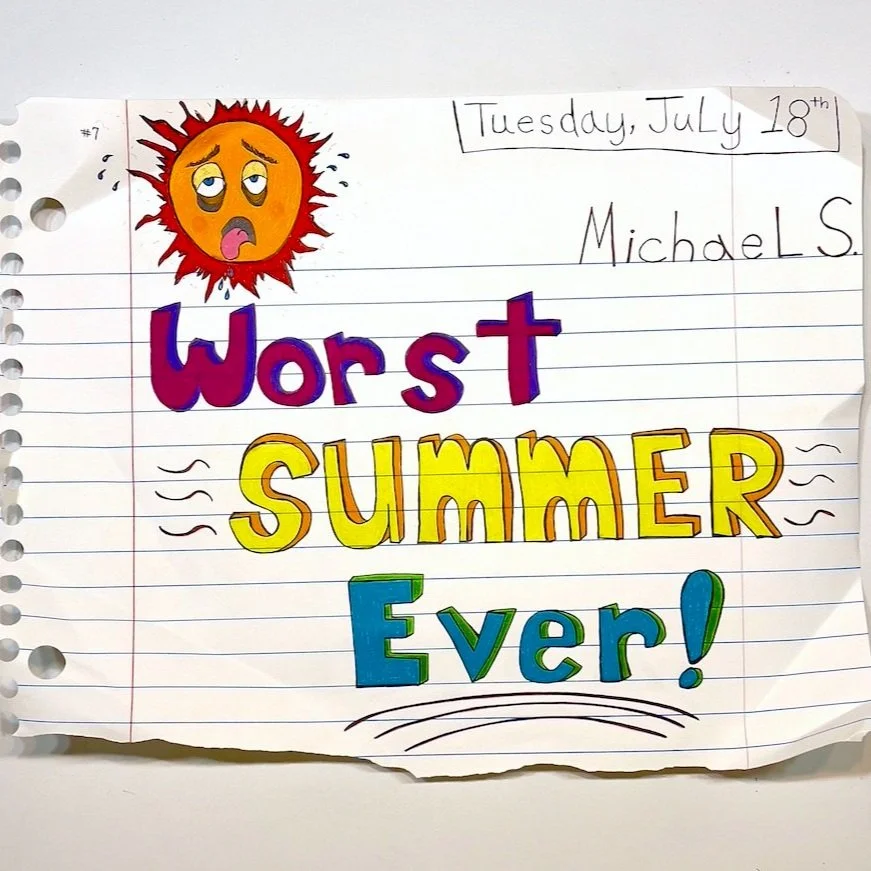 #7
Tuesday, JuLy 18th
MichaeL S.
Worst
SUmmER
Ever!